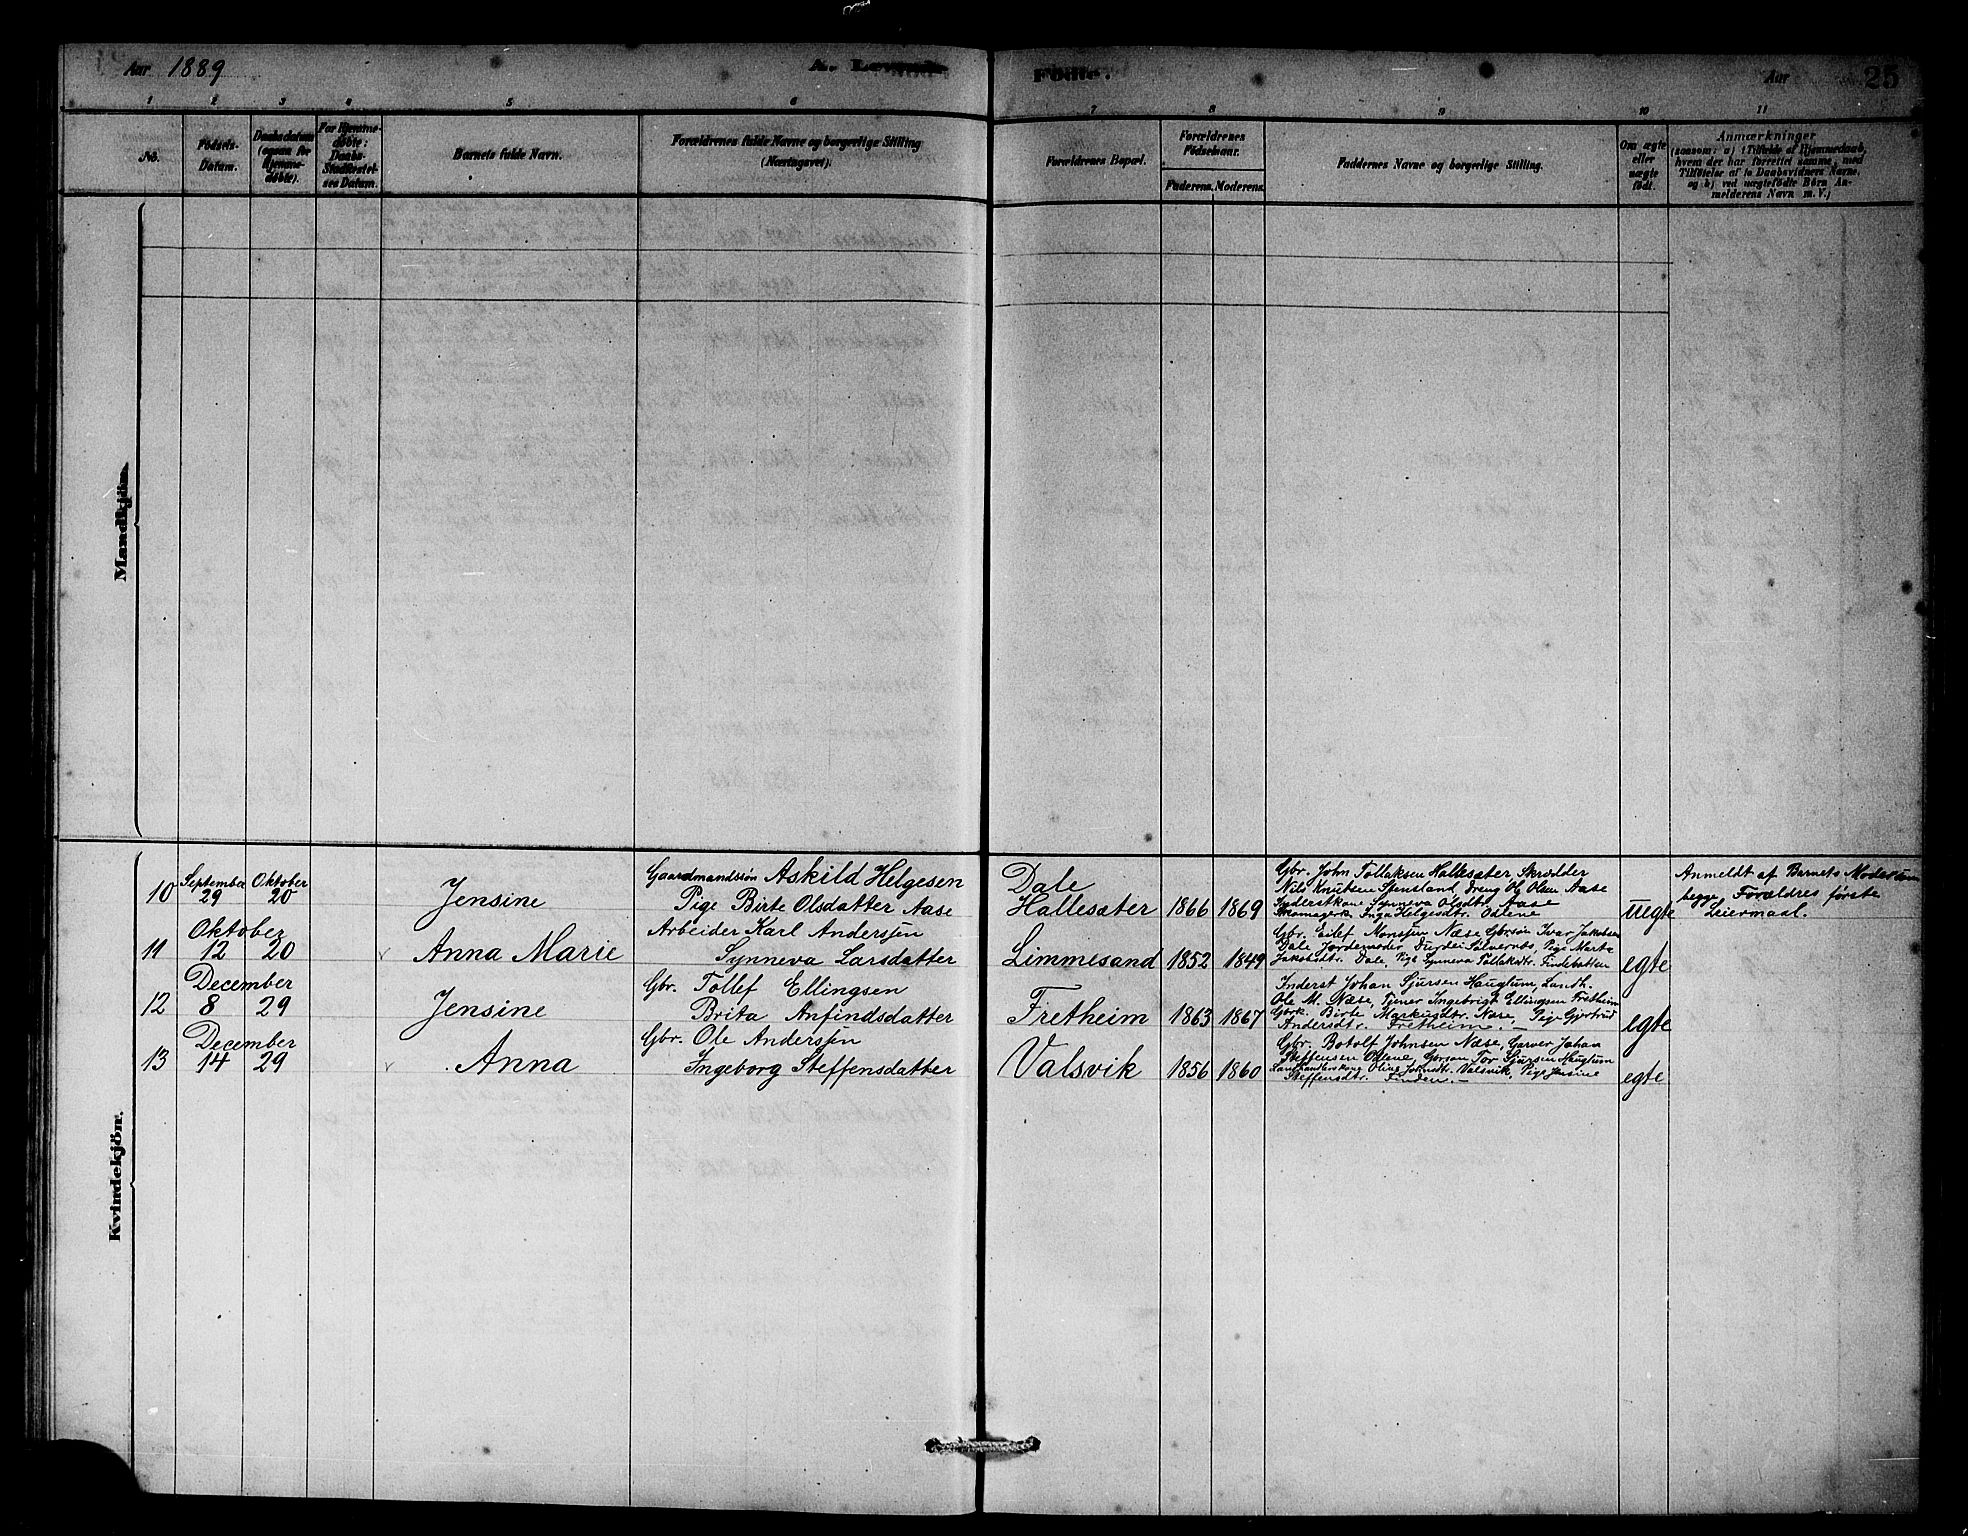 Aar 1889 A. Levende Födte. Aar 25
1 2 3 4 5 6 7 8 9 10 11
No.
Födsels-
Datum.
Daabsdatum
(ogsaa for
Hjemme-
døbte).
For Hjemme-
døbte:
Daabs-
Stadfæstel-
ses Datum.
Barnets fulde Navn.
Forældrenes fulde Navne og borgerlige Stilling
(Næringsvei).
Forældrenes Bopæl.
Forældrenes
Födselsaar.
Faderens. Moderens.
Faddernes Navne og borgerlige Stilling.
Om ægte
eller
uægte
födt.
Anmærkninger
(saasom: a) i Tilfælde af Hjemmedaab,
hvem der har forrettet samme, med
Tilföielse af to Daabsvidners Navne,
og b) ved uægtefödte Börn An-
melderens Navn m. V.)
Mandkjön.
Kvindekjön.
10
September
29
Oktober
20
Jensine
Gaardmandssön Askild Helgesen
Pige Birte Olsdatter Aase
Dale
Hallesæter
1866 1869
Gbr. John Tollaksen Hallesæter, Skrædder
Nils Knutsen Stensland, Dreng Ol Olsen Aase
Inderstkone Synneva Olsdtr. Aase
Skomagerk. Inga Helgesdtr. Odlene
uegte
Anmeldt af Barnets Moder som
begge Forældres første
Leiermaal.
11
Oktober
12 20
Anna Marie
Arbeider Karl Andersen
Synneva Larsdatter
Limmesand
1852 1849
Gbr. Eilef Monsen Næse, Gbrsön Ivar Jakobsen
Dale, Jordemoder Durdei Sølvernes, Pige Marta
Jakobsdtr. Dale, Pige Synneva Tollaksdtr. Findebotten
egte
12
December
8 29
Jensine
Gbr. Tollef Ellingsen
Brita Anfindsdatter
Fretheim
1863 1867
Inderst Johan Sjursen Haugtun, Landh.
Ole M. Næse, Tjener Ingebrigt Ellingsen Fretheim
Gbrk. Birte Markusdtr. Næse, Pige Gjertrud
Andersdtr. Fretheim.
egte
13
December
14 29
Anna
Gbr. Ole Andersen
Ingeborg Steffensdatter
Valsvik
1856 1860
Gbr. Botolf Johnsen Næse, Garver Johan
Steffensen Odlene, Gbrsön Tor Sjursen Haugtun
Landhandlerskone Oline Johndtr. Valsvik, Pige Jensine
Steffensdtr. Finden.
egte